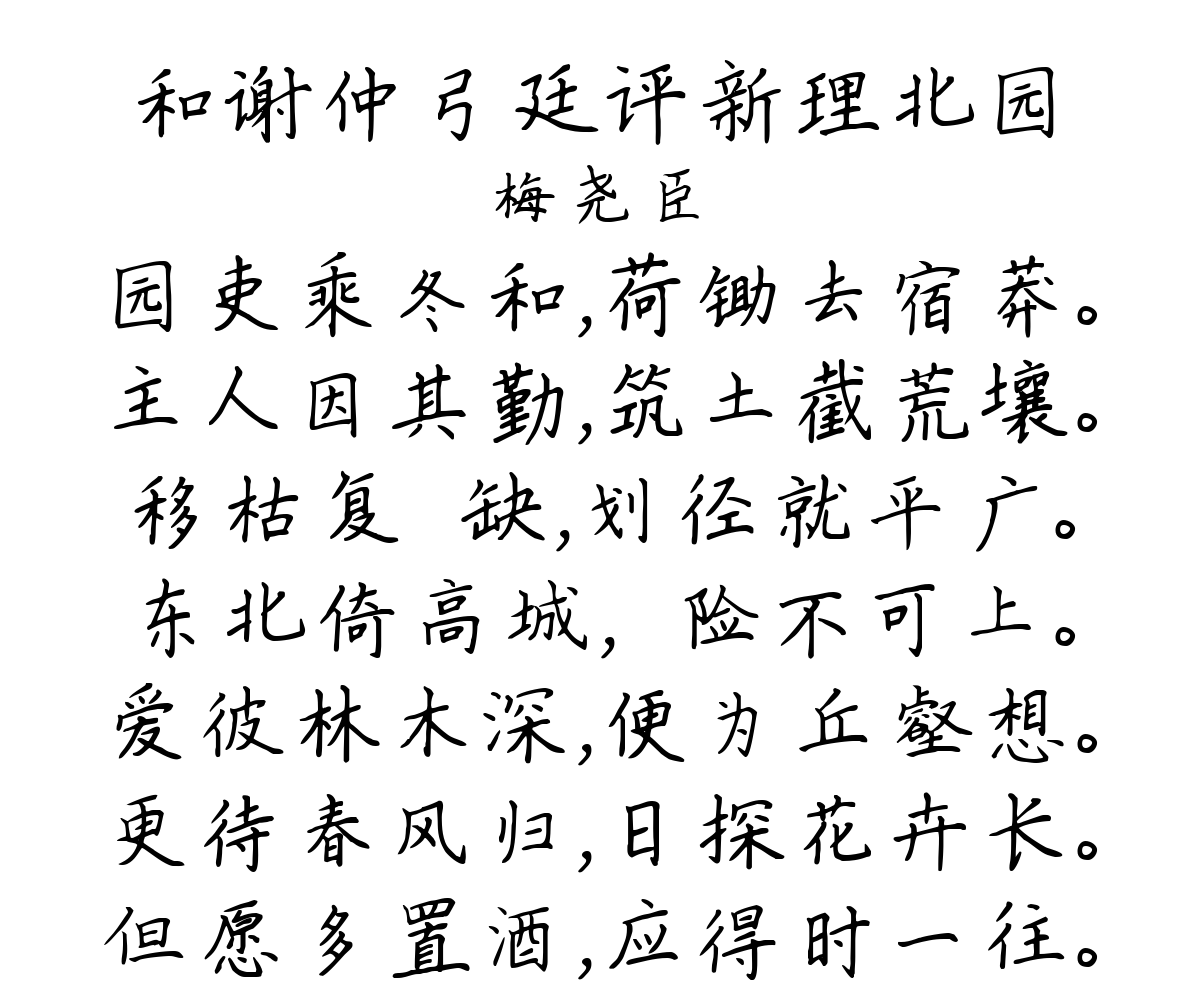 和谢仲弓廷评新理北园
梅尧臣
园吏乘冬和,荷锄去宿莽。
主人因其勤,筑土截荒壤。
移枯复 缺,划径就平广。
东北倚高城, 险不可上。
爱彼林木深,便为丘壑想。
更待春风归,日探花卉长。
但愿多置酒,应得时一往。